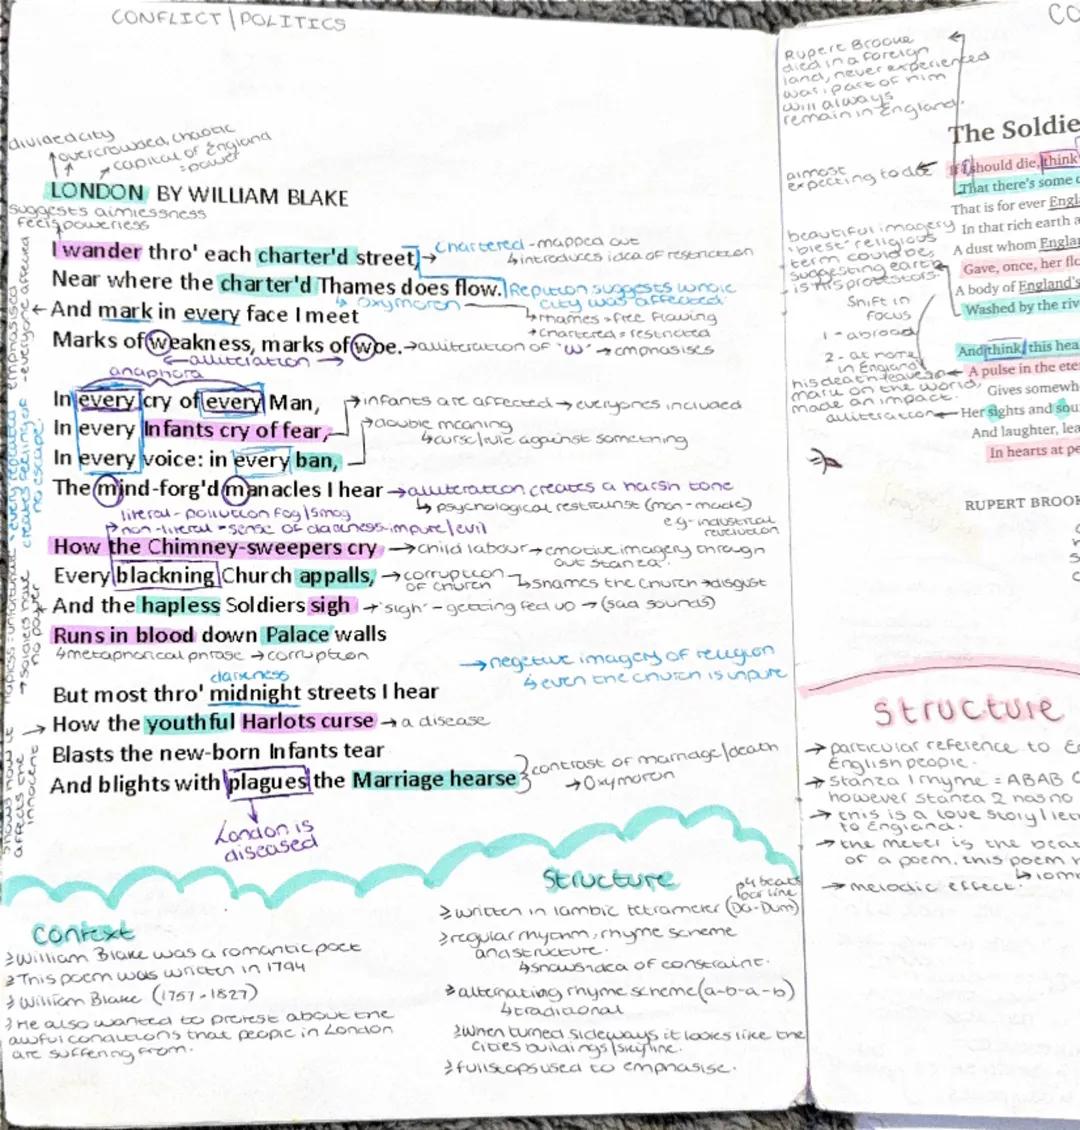 CONFLICT | POLITICS
divided city
overcrowded, chaotic
capital of England
=power
LONDON BY WILLIAM BLAKE
suggests aimlessness
feels powerless
I wander thro' each charter'd street,
Chartered - mapped out
introduces idea of restriction
Near where the charter'd Thames does flow.
Repition suggests whole
city was affected
oxymoron
And mark in every face I meet
thames = free flowing
chartered = restricted
Marks of weakness, marks of woe.
alliteration of 'w' → emphasises
alliteration
anaphora
In every cry of every Man,
infants are affected → everyones included
In every Infants cry of fear,
double meaning
curse/rule against something
In every voice: in every ban,
The mind-forg'd manacles I hear
alliteration creates a harsh tone
psychological restrainst (man-made)
e.g - industrial
revolution
literal - pollution fog/smog
non-literal - sense of darkness, impure/evil
How the Chimney-sweepers cry
child labour → emotive imagery through
out stanza.
Every blackning Church appalls,
corruption
of church
shames the church → disgust
And the hapless Soldiers sigh
'sigh' - getting fed up → (sad sounds)
Runs in blood down Palace walls
metaphorical phrase → corruption
negetive imagery of religion
even the church is unpure
darkness
But most thro' midnight streets I hear
How the youthful Harlots curse
a disease
Blasts the new-born Infants tear
And blights with plagues the Marriage hearse
contrast of marriage/death
→ Oxymoron
London is
diseased
no escape
creates feeling of
no power
soldiers have
affects the
innocent
Context
William Blake was a romantic poet
This poem was written in 1794
William Blake (1757-1827)
He also wanted to protest about the
awful conditions that people in London
are suffering from.
Structure
written in iambic tetrameter (Da-Dum)
4 beats
per line
regular rhythm, rhyme scheme
and structure.
shows idea of constraint.
alternating rhyme scheme (a-b-a-b)
traditional
When turned sideways it looks like the
cities buildings/skyline.
fullstops used to emphasise.
CO
Rupert Brooke
died in a foreign
land, never experienced
war, part of him
will always
remain in England.
The Soldie
almost
expecting to die
If I should die, think
That there's some c
That is for ever Engla
beautiful imagery
'blest' religious
term could be
suggesting earth
is his protestors
In that rich earth a
A dust whom Englan
Gave, once, her flo
A body of England's
Washed by the rive
Shift in
focus
1 - abroad
2 - at home
in England
And think, this hea
A pulse in the eter
his death leaves a
mark on the world,
made an impact.
Gives somewh
alliteration
Her sights and sou
And laughter, lea
In hearts at pe
RUPERT BROOK
Structure
particular reference to En
English people.
Stanza 1 rhyme = ABAB C
however stanza 2 has no
this is a love story/lett
to England.
the meter is the beat
of a poem. this poem h
melodic effect.